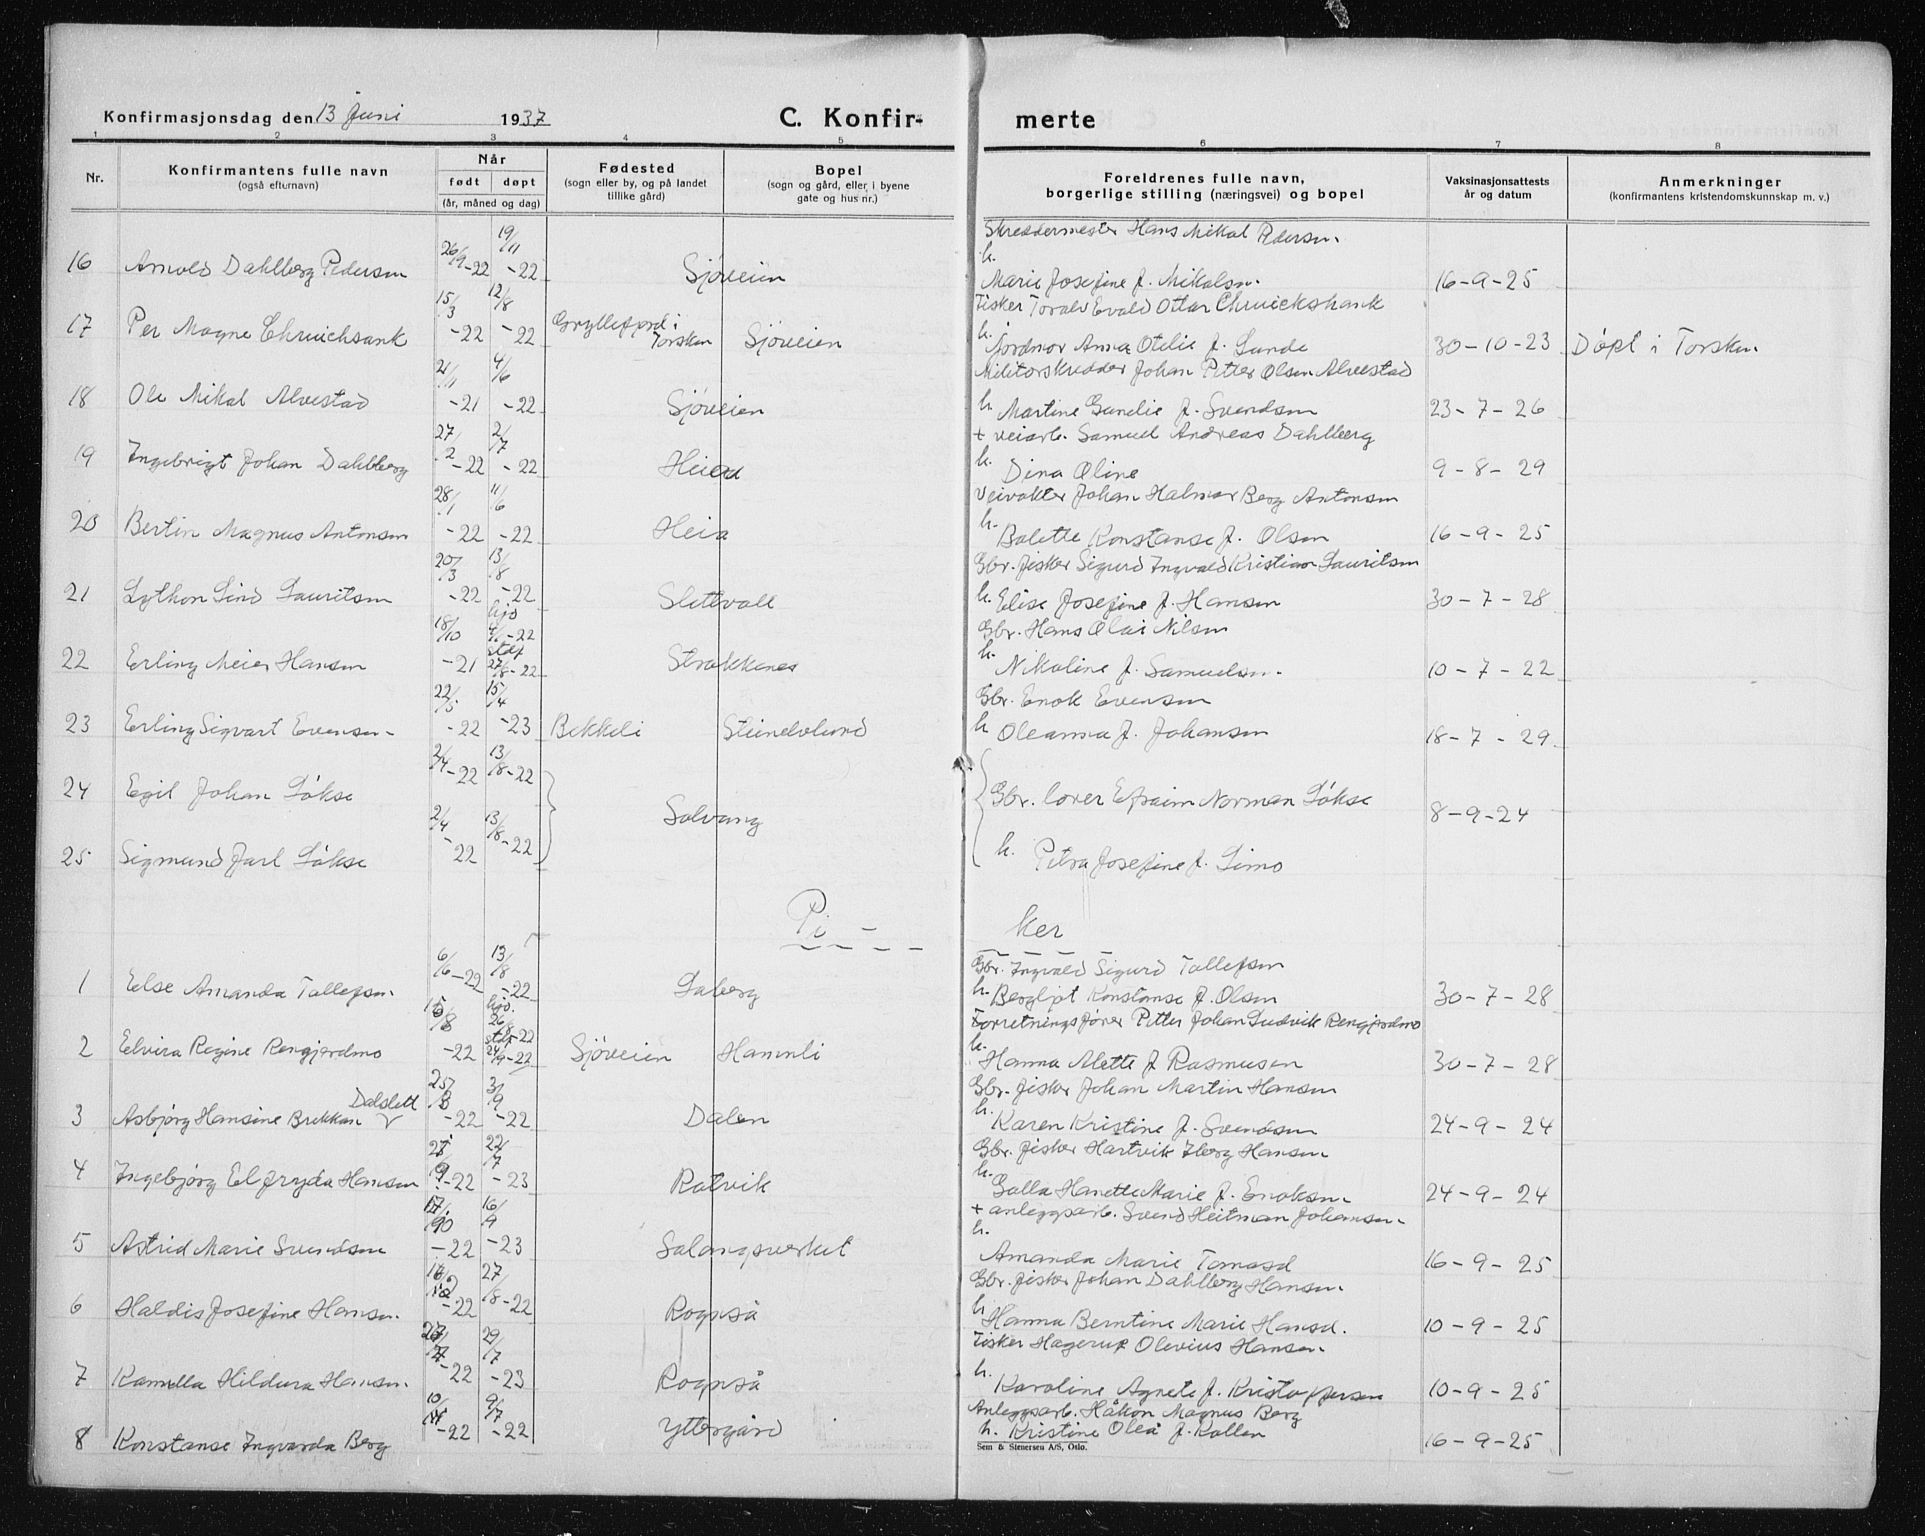 Konfirmasjonsdag den 13 Juni 1937
C. Konfir-
merte
1 2 3 4 5 6 7 8
Nr.
Konfirmantens fulle navn
(også efternavn)
Når
født døpt
(år, måned og dag)
Fødested
(sogn eller by, og på landet
tillike gård)
Bopel
(sogn og gård, eller i byene
gate og hus nr.)
Foreldrenes fulle navn,
borgerlige stilling (næringsvei) og bopel
Vaksinasjonsattests
år og datum
Anmerkninger
(konfirmantens kristendomskunnskap m. v.)
Skreddermester Hans Mikal Pedersen.
16 Arnold Dahlberg Pedersen 26/9-22 19/11-22 Sjøveien h. Marie Josefine f. Mikalsen. 16-9-25
Fisker Toralv Evald Ottar Chruickshank
17 Per Magne Chruichsank 15/3-22 12/8-22 Gryllefjord i Torsken Sjøveien h. Jordmor Anna Otelie f. Lunde 30-10-23 Døpt i Torsken
Militærskredder Johan Petter Olsen Alvestad
18 Ole Mikal Alvestad 21/11-21 4/6-22 Sjøveien h. Martine Gunelie f. Svendsen 23-7-26
+ veiarb. Samuel Andreas Dahlberg
19 Ingebrigt Johan Dahlberg 27/2-22 2/7-22 Heia h. Dina Oline 9-8-29
Veivokter Johan Halmar Berg Antonsen
20 Bertin Magnus Antonsen 28/1-22 11/6-22 Heia h. Bolette Konstanse f. Olsen 16-9-25
Gbr. fisker Sigurd Ingvald Kristian Lauritsen
21 Lython Lind Lauritsen 20/3-22 13/8-22 Slettvoll h. Elise Josefine f. Hansen 30-7-28
Gbr. Hans Olai Nilsen
22 Erling Meier Hansen 18/10-21 hjd -22 stdf 27/8-22 Strokkenes h. Nikoline f. Samuelsen. 10-7-22
Gbr. Enok Evensen
23 Erling Sigvart Evensen 22/5-22 15/4-23 Bekkeli Steinelvlund h. Oleanna f. Johansen 18-7-29
24 Egil Johan Løkse 2/4-22 13/8-22 Gbr. lærer Efraim Norman Løkse
Solvang 8-9-24
25 Sigmund Jarl Løkse 2/4-22 13/8-22 h. Petra Josefine f. Simo
Pi - ker
Gbr. Ingvald Sigurd Tollefsen
1 Else Amanda Tollefsen. 6/6-22 13/8-22 Laberg h. Bergljot Konstanse f. Olsen 30-7-28
Forretningsfører Petter Johan Ludvik Rengjerdmo
2 Elvira Regine Rengjerdmo 15/8-22 hjd. 26/8-22 stdf 24/9-22 Sjøveien Hamnli h. Hanna Alette f. Rasmusen 30-7-28
Gbr. fisker Johan Martin Hansen
Dalslett
3 Asbjørg Hansine Brekkan 25/8-22 3/9-22 Dalen h. Karen Kristine f. Svendsen 24-9-24
Gbr. fisker Hartvik Iberg Hansen
4 Ingebjørg Elfryda Hansen -22 22/7-23 Rotvik h. Galla Hanette Marie f. Enoksen. 24-9-24
+ anleggsarb. Svend Heitman Johansen.
5 Astrid Marie Svendsen -22 16/9-23 Salangsverket h. Amanda Marie Tomasd 16-9-25
Gbr. fisker Johan Dahlberg Hansen.
6 Haldis Josefine Hansen. -22 27/8-22 Rognså h. Hanna Berntine Marie Hansd. 10-9-25
Fisker Hagerup Olevius Hansen.
7 Kamilla Hildura Hansen. -22 29/7-23 Rognså h. Karoline Agnete f. Kristoffersen 10-9-25
Anleggsarb. Håkon Magnus Berg
8 Konstanse Ingvarda Berg -22 9/7-22 Yttergård h. Kristine Olea f. Kollen 16-9-25
Sem & Stenersen A/S, Oslo.